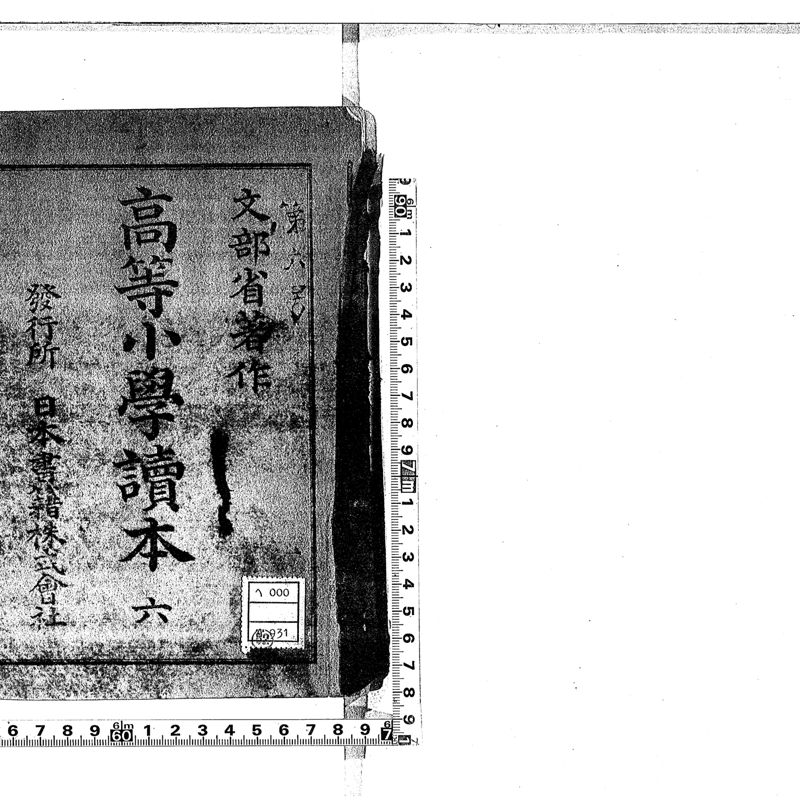 文部省著作
高等小學讀本 六
發行所 日本書籍株式會社
ヘ 000
931
6 7 8 9 60 1 2 3 4 5 6 7 8 9 7
90 1 2 3 4 5 6 7 8 9 1 2 3 4 5 6 7 8 9